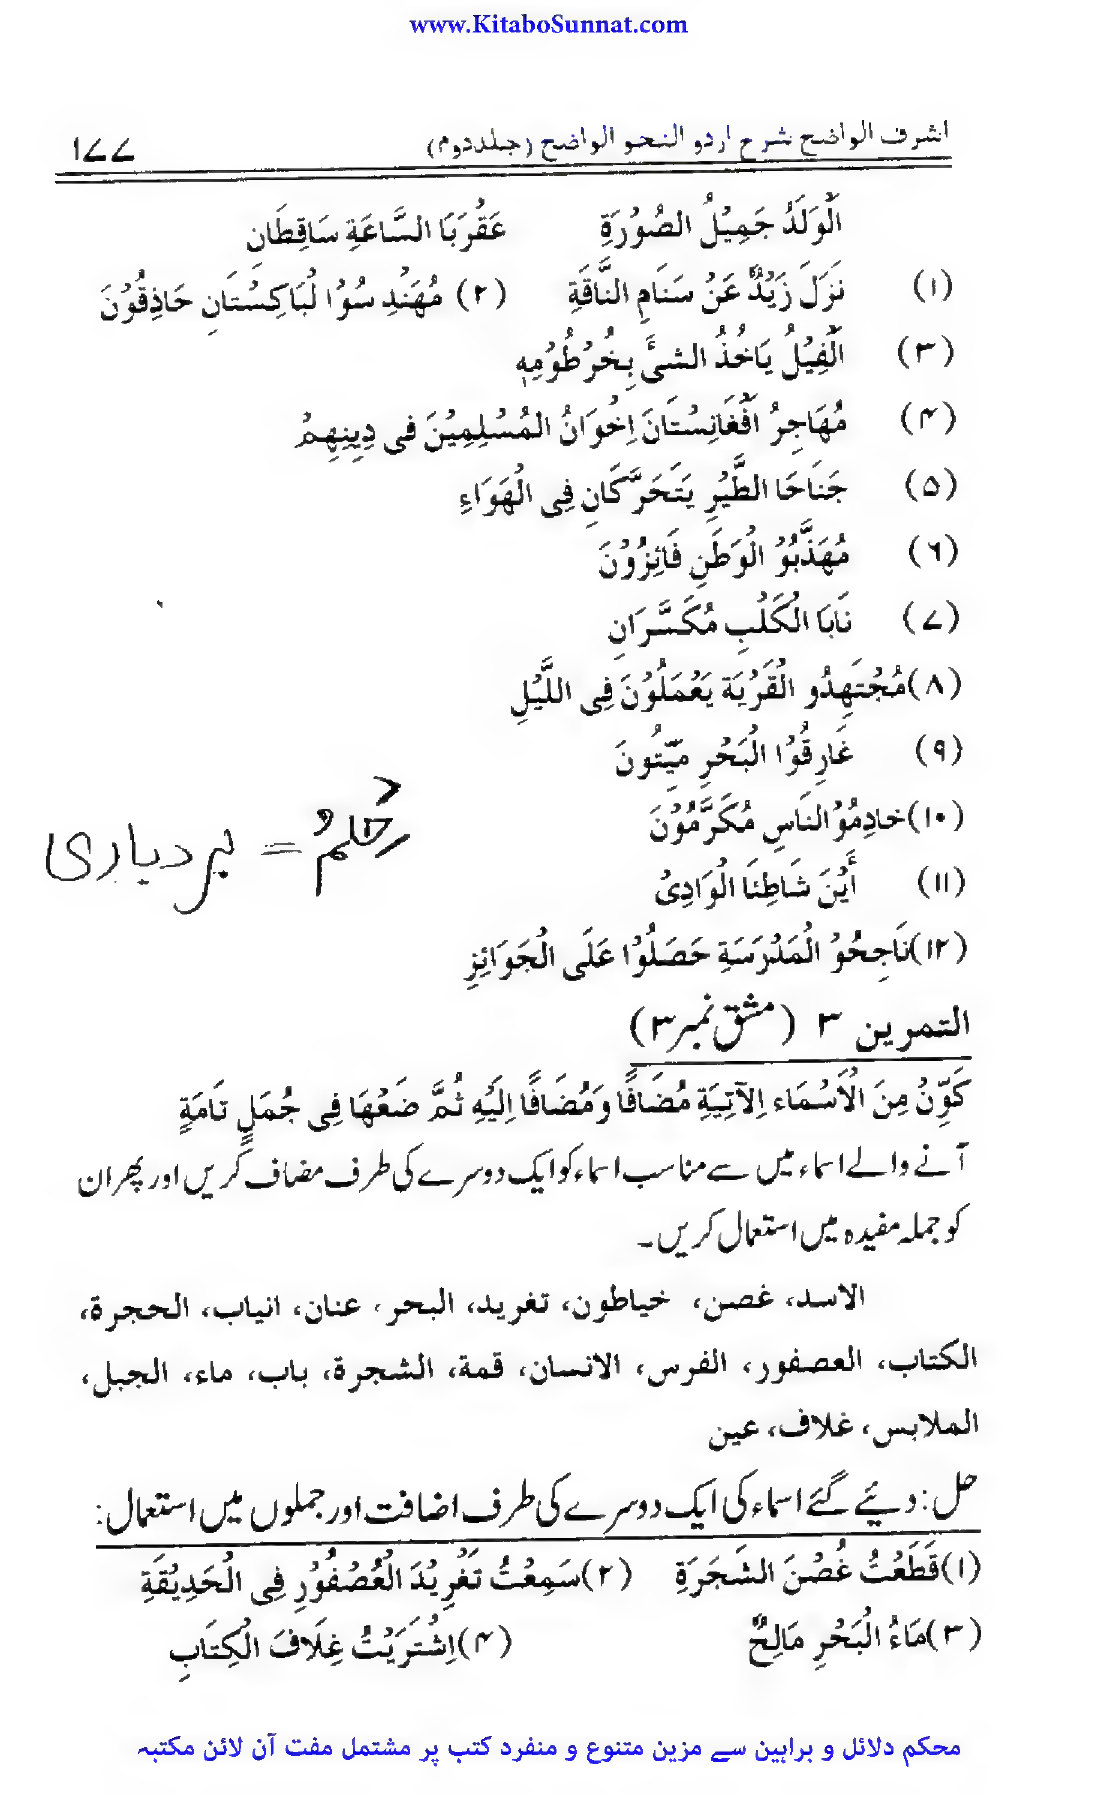 www.KitaboSunnat.com
اشرف الواضح شرح اردو النحو الواضح (جلد دوم) ۱۷۷
الْوَلَدُ جَمِيْلُ الصُّوْرَةِ عَقْرَبَا السَّاعَةِ سَاقِطَانِ
(۱) نَزَلَ زَيْدٌ عَنْ سَنَامِ النَّاقَةِ (۲) مُهَنْدِسُوْا لْبَاكِسْتَانِ حَاذِقُوْنَ
(۳) الْفِيْلُ يَاخُذُ الشئَ بِخُرْطُوْمِهٖ
(۴) مُهَاجِرُ افْغَانِسْتَانَ اِخْوَانُ الْمُسْلِمِيْنَ فى دِيِنِهِمْ
(۵) جَنَاحَا الطَّيْرِ يَتَحَرَّكَانِ فِى الْهَوَاءِ
(۶) مُهَذَّبُوْ الْوَطَنِ فَائِزُوْنَ
(۷) نَابَا الْكَلْبِ مُكَسَّرَانِ
(۸) مُجْتَهِدُو الْقَرْيَة يَعْمَلُوْنَ فِى اللَّيْلِ
(۹) غَارِقُوْا الْبَحْرِ مَيِّتُونَ
(۱۰) خادِمُوْ النَاسِ مُكَرَّمُوْنَ
حُلُمٌ = بردباری
(۱۱) أَيْنَ شَاطِئَا الْوَادِىْ
(۱۲) نَاجِحُوْ الْمَدْرَسَةِ حَصَلُوْا عَلَى الْجَوَائِزِ
التمرين ۳ (مشق نمبر۳)
كَوِّنْ مِنَ الْاَسْمَاء الآتِيَةِ مُضَافًا وَمُضَافًا اِلَيْهِ ثُمَّ ضَعْهَا فِى جُمَلٍ تَامَةٍ
آنے والے اسماء میں سے مناسب اسماء کو ایک دوسرے کی طرف مضاف کریں اور پھر ان
کو جملہ مفیدہ میں استعمال کریں۔
الاسد، غصن، خياطون، تغريد، البحر، عنان، انياب، الحجرة،
الكتاب، العصفور، الفرس، الانسان، قمة، الشجرة، باب، ماء، الجبل،
الملابس، غلاف، عين
حل: دیئے گئے اسماء کی ایک دوسرے کی طرف اضافت اور جملوں میں استعمال:
(۱) قَطَعْتُ غُصْنَ الشَجَرَةِ (۲) سَمِعْتُ تَغْرِيْدَ الْعُصْفُوْرِ فِى الْحَدِيْقَةِ
(۳) مَاءُ الْبَحْرِ مَالِحٌ (۴) اِشْتَرَيْتُ غِلَافَ الْكِتَابِ
محکم دلائل و براہین سے مزین متنوع و منفرد کتب پر مشتمل مفت آن لائن مکتبہ